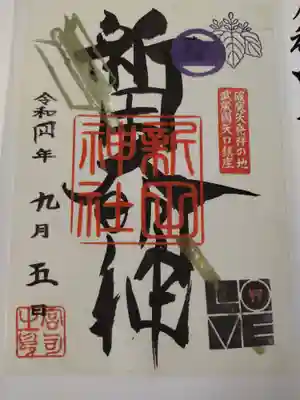 新田大神
新田神社
破魔矢発祥の地
武蔵国矢口鎮座
令和四年 九月五日
LOVE